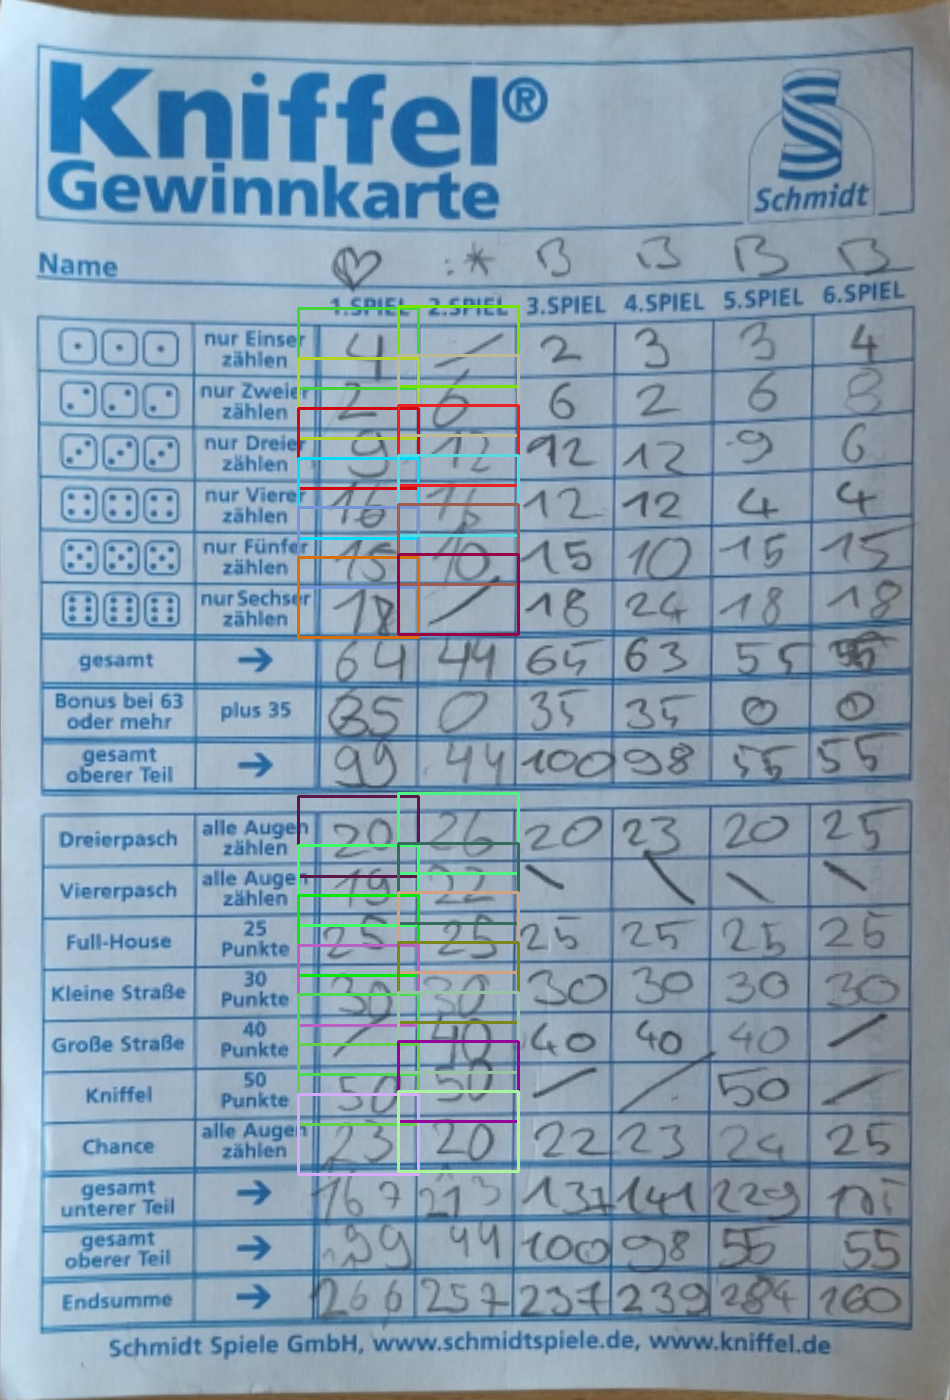 Kniffel®
Gewinnkarte
Schmidt
Name B B B B
1.SPIEL 2.SPIEL 3.SPIEL 4.SPIEL 5.SPIEL 6.SPIEL
nur Einser zählen 4 / 2 3 3 4
nur Zweier zählen 2 6 6 2 6 8
nur Dreier zählen 9 12 12 12 9 6
nur Vierer zählen 16 16 12 12 4 4
nur Fünfer zählen 15 10 15 10 15 15
nur Sechser zählen 18 / 18 24 18 18
gesamt → 64 44 65 63 55
Bonus bei 63 oder mehr plus 35 35 0 35 35 0 0
gesamt oberer Teil → 99 44 100 98 55 55
Dreierpasch alle Augen zählen 20 26 20 23 20 25
Viererpasch alle Augen zählen 19 22 \ \ \ \
Full-House 25 Punkte 25 25 25 25 25 25
Kleine Straße 30 Punkte 30 30 30 30 30 30
Große Straße 40 Punkte / 40 40 40 40 /
Kniffel 50 Punkte 50 50 / / 50 /
Chance alle Augen zählen 23 20 22 23 24 25
gesamt unterer Teil → 167 213 137 141 229
gesamt oberer Teil → 99 44 100 98 55 55
Endsumme → 266 257 237 239 284 160
Schmidt Spiele GmbH, www.schmidtspiele.de, www.kniffel.de